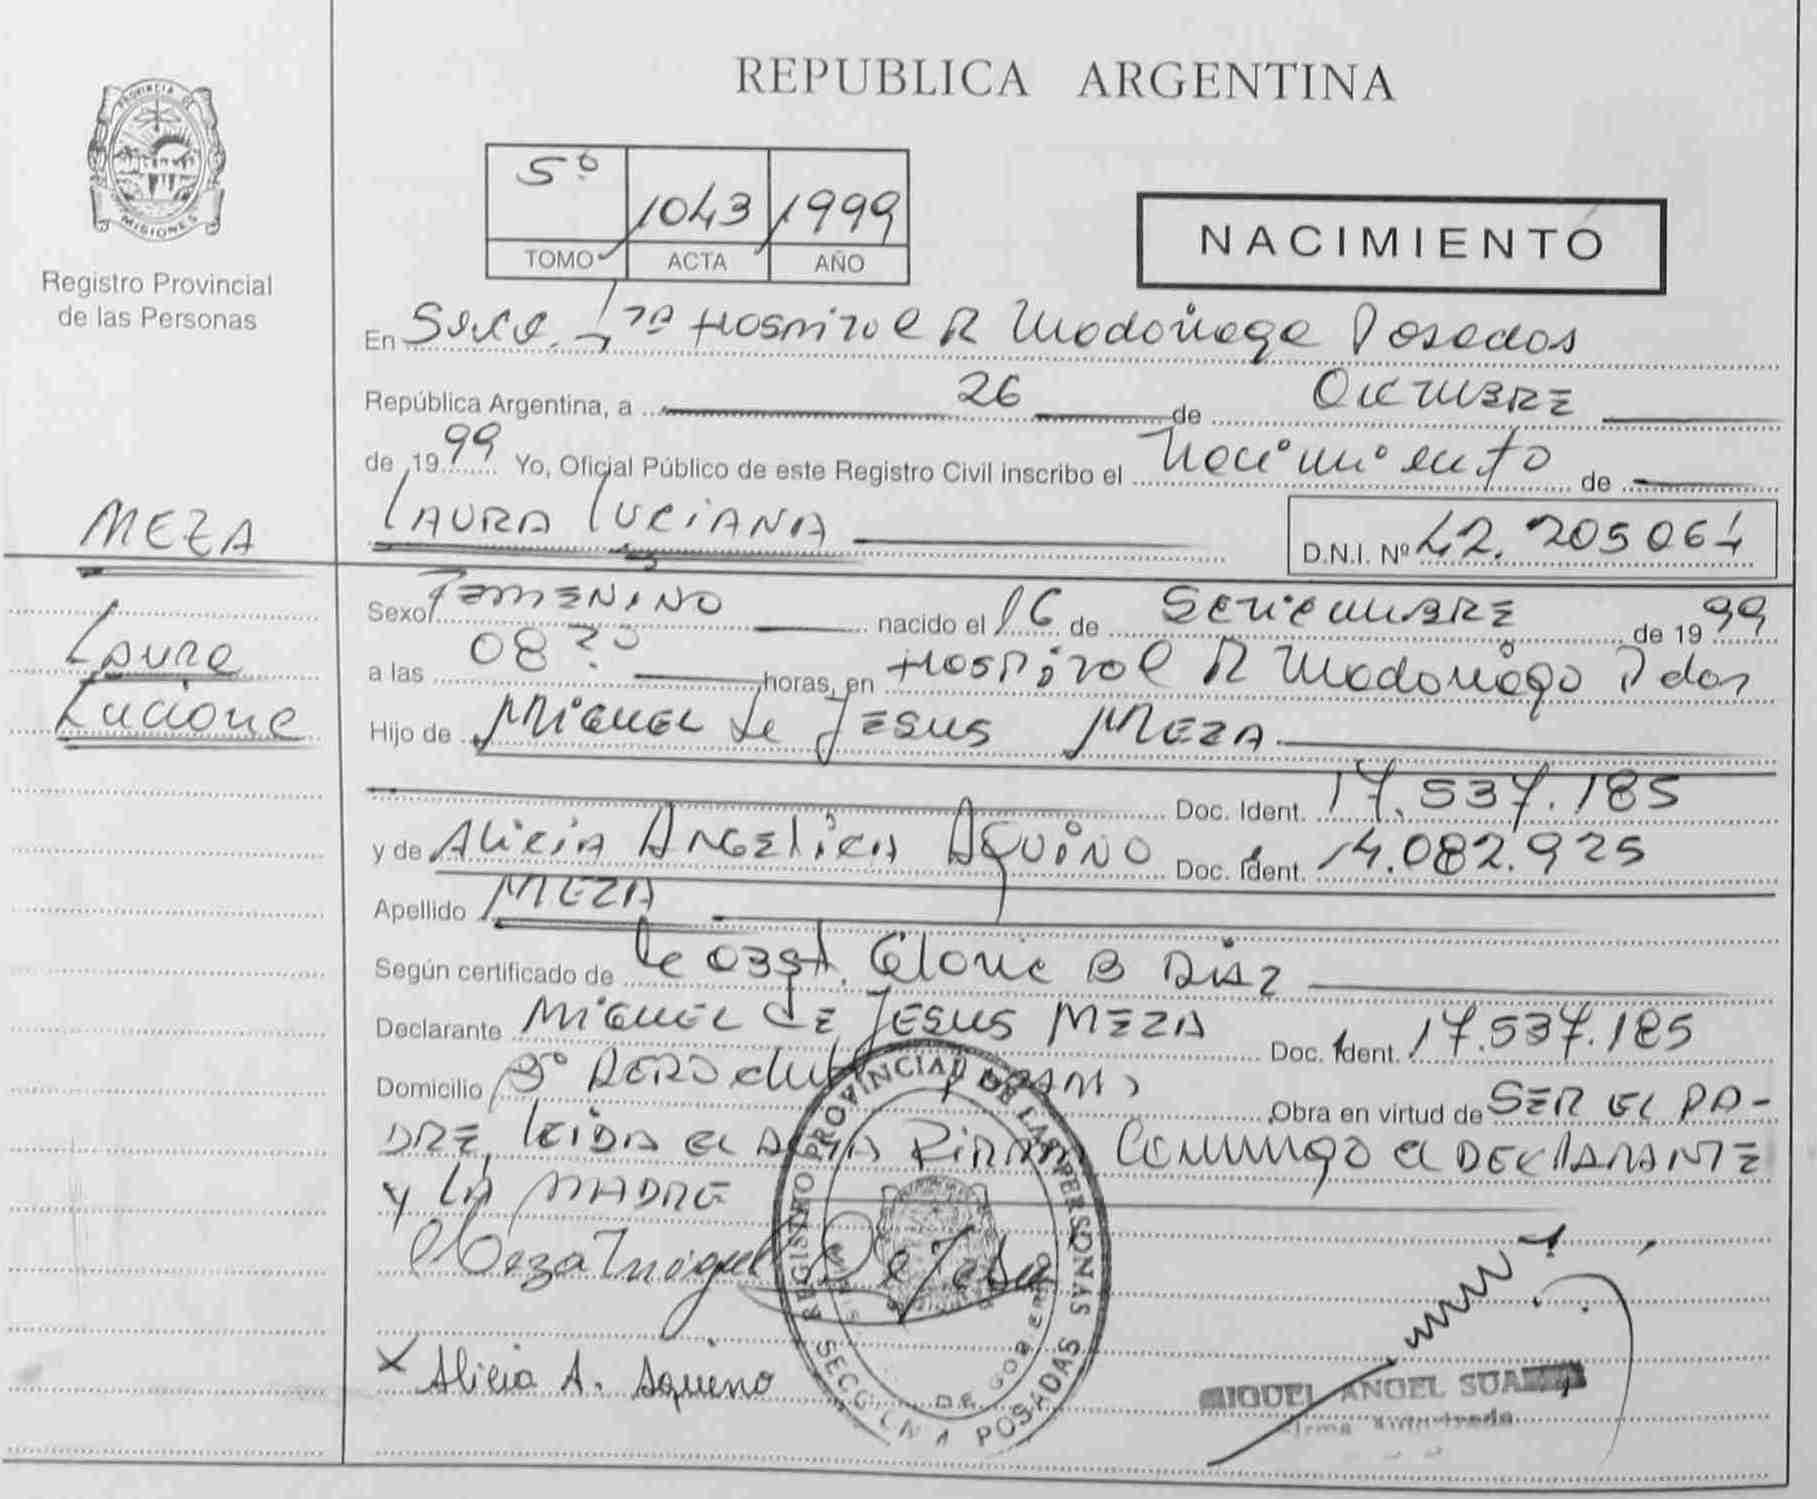 REPUBLICA ARGENTINA
PROVINCIA DE
MISIONES
Registro Provincial
de las Personas
5º 1043 1999
TOMO ACTA AÑO
NACIMIENTO
En Secc. 1ra Hospital R Madariaga Posadas
República Argentina, a 26 de OCTUBRE
de 1999 Yo, Oficial Público de este Registro Civil inscribo el Nacimiento de
MEZA
LAURA LUCIANA
D.N.I. Nº 42.205064
Laura
Luciana
Sexo FEMENINO nacido el 16 de SETIEMBRE de 1999
a las 08 horas, en Hospital R Madariaga Pdas
Hijo de MIGUEL de JESUS MEZA
Doc. Ident. 17.537.185
y de ALICIA ANGELICA AQUINO Doc. Ident. 14.082.925
Apellido MEZA
Según certificado de la OBST. Gloria B DIAZ
Declarante MIGUEL DE JESUS MEZA Doc. Ident. 17.537.185
Domicilio Obra en virtud de SER EL PA-
DRE, LEIDA EL ACTA FIRMAN CONMIGO el DECLARANTE
y LA MADRE
Meza Miguel De Jesu
X Alicia A. Aquino
REGISTRO PROVINCIAL DE LAS PERSONAS
SECC 1ª POSADAS
MIGUEL ANGEL SUAREZ
Firma Autorizada